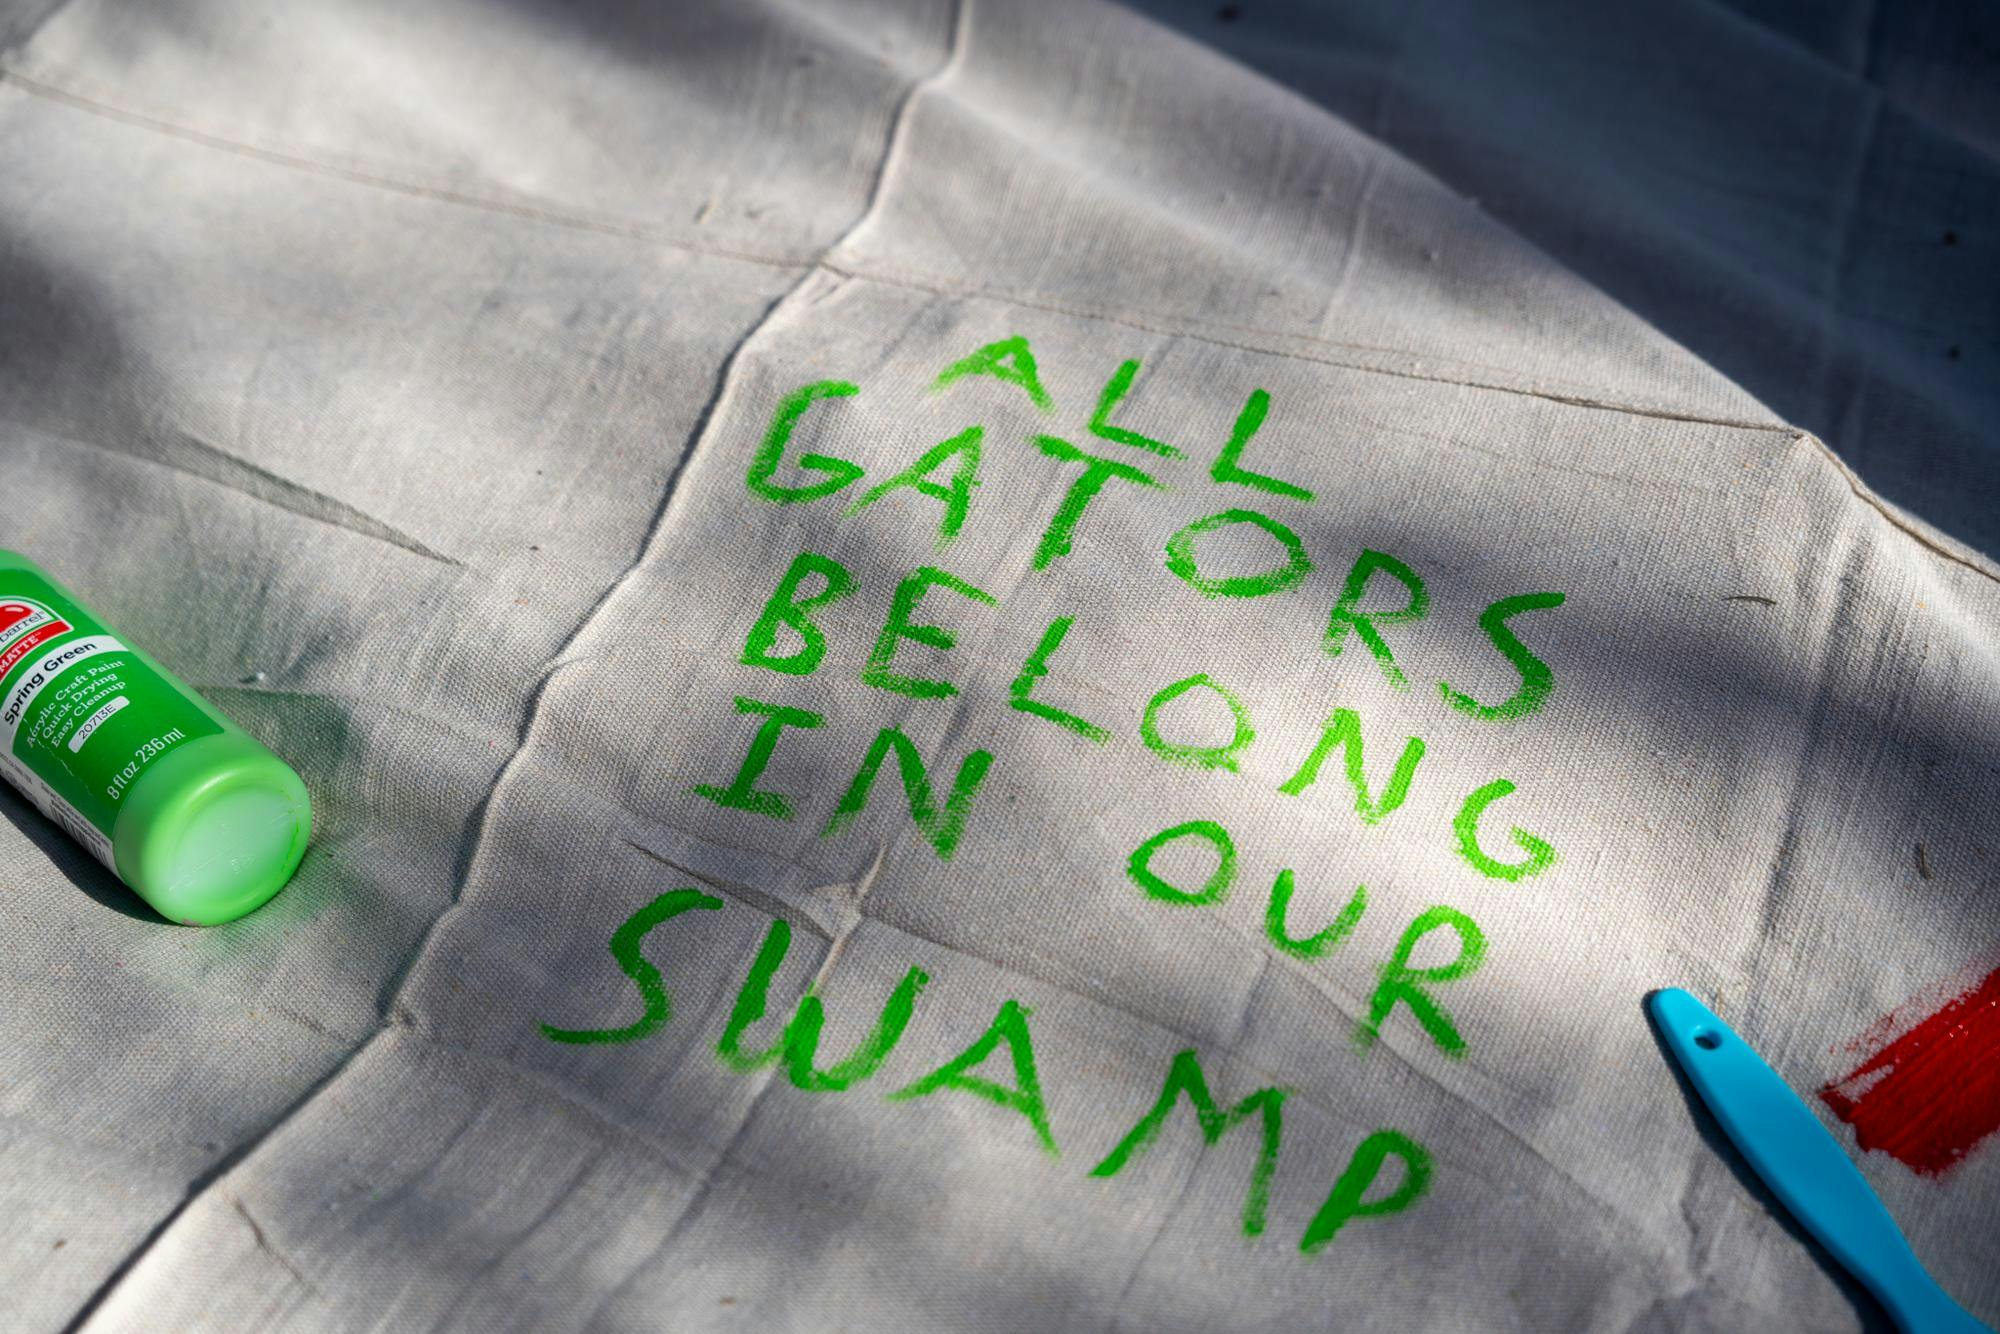 ALL
GATORS
BELONG
IN OUR
SWAMP
barrel
MATTE
Spring Green
Acrylic Craft Paint
Quick Drying
Easy Cleanup
20713E
8 fl oz 236 ml